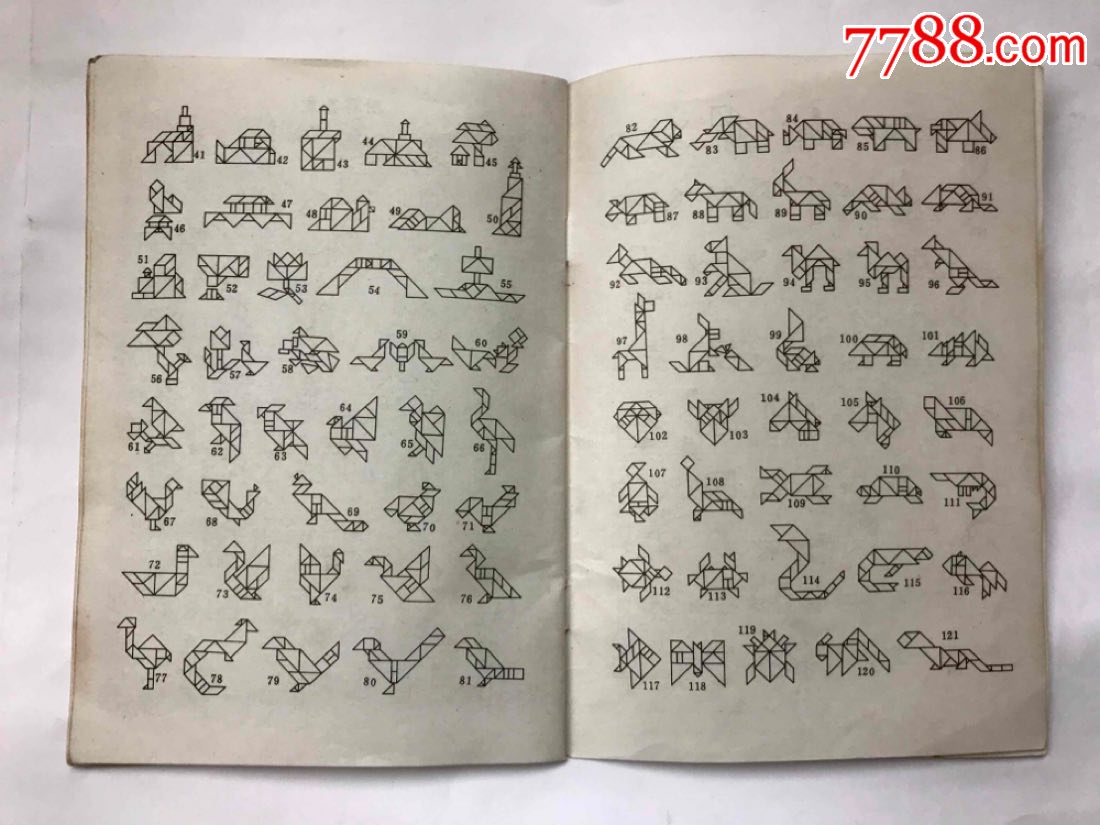 7788.com
41 42 43 44 45
46 47 48 49 50
51 52 53 54 55
56 57 58 59 60
61 62 63 64 65 66
67 68 69 70 71
72 73 74 75 76
77 78 79 80 81
82 83 84 85 86
87 88 89 90 91
92 93 94 95 96
97 98 99 100 101
102 103 104 105 106
107 108 109 110 111
112 113 114 115 116
117 118 119 120 121